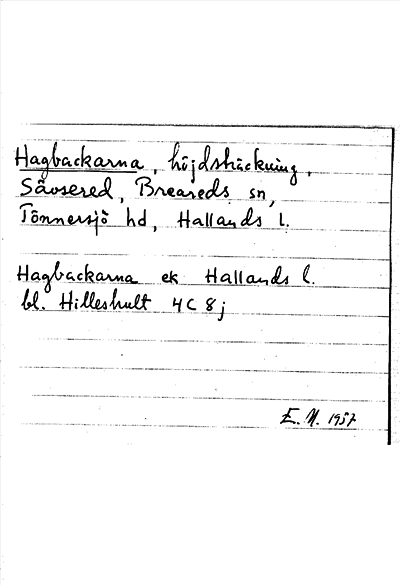 Hagbackarna, höjdsträckning,
Såvsered, Breareds sn,
Tönnersjö hd, Hallands l.
Hagbackarna ek Hallands l.
bl. Hilleshult 4C 8j
E. N. 1957